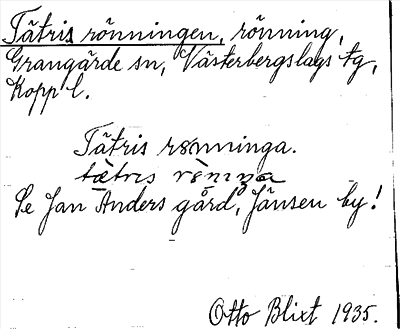 Tätris rönningen, rönning,
Grangärde sn, Västerbergslags tg,
Kopp l.
Tätris rönninga.
Se Jan Anders gård, Jänsen by!
Otto Blixt 1935.